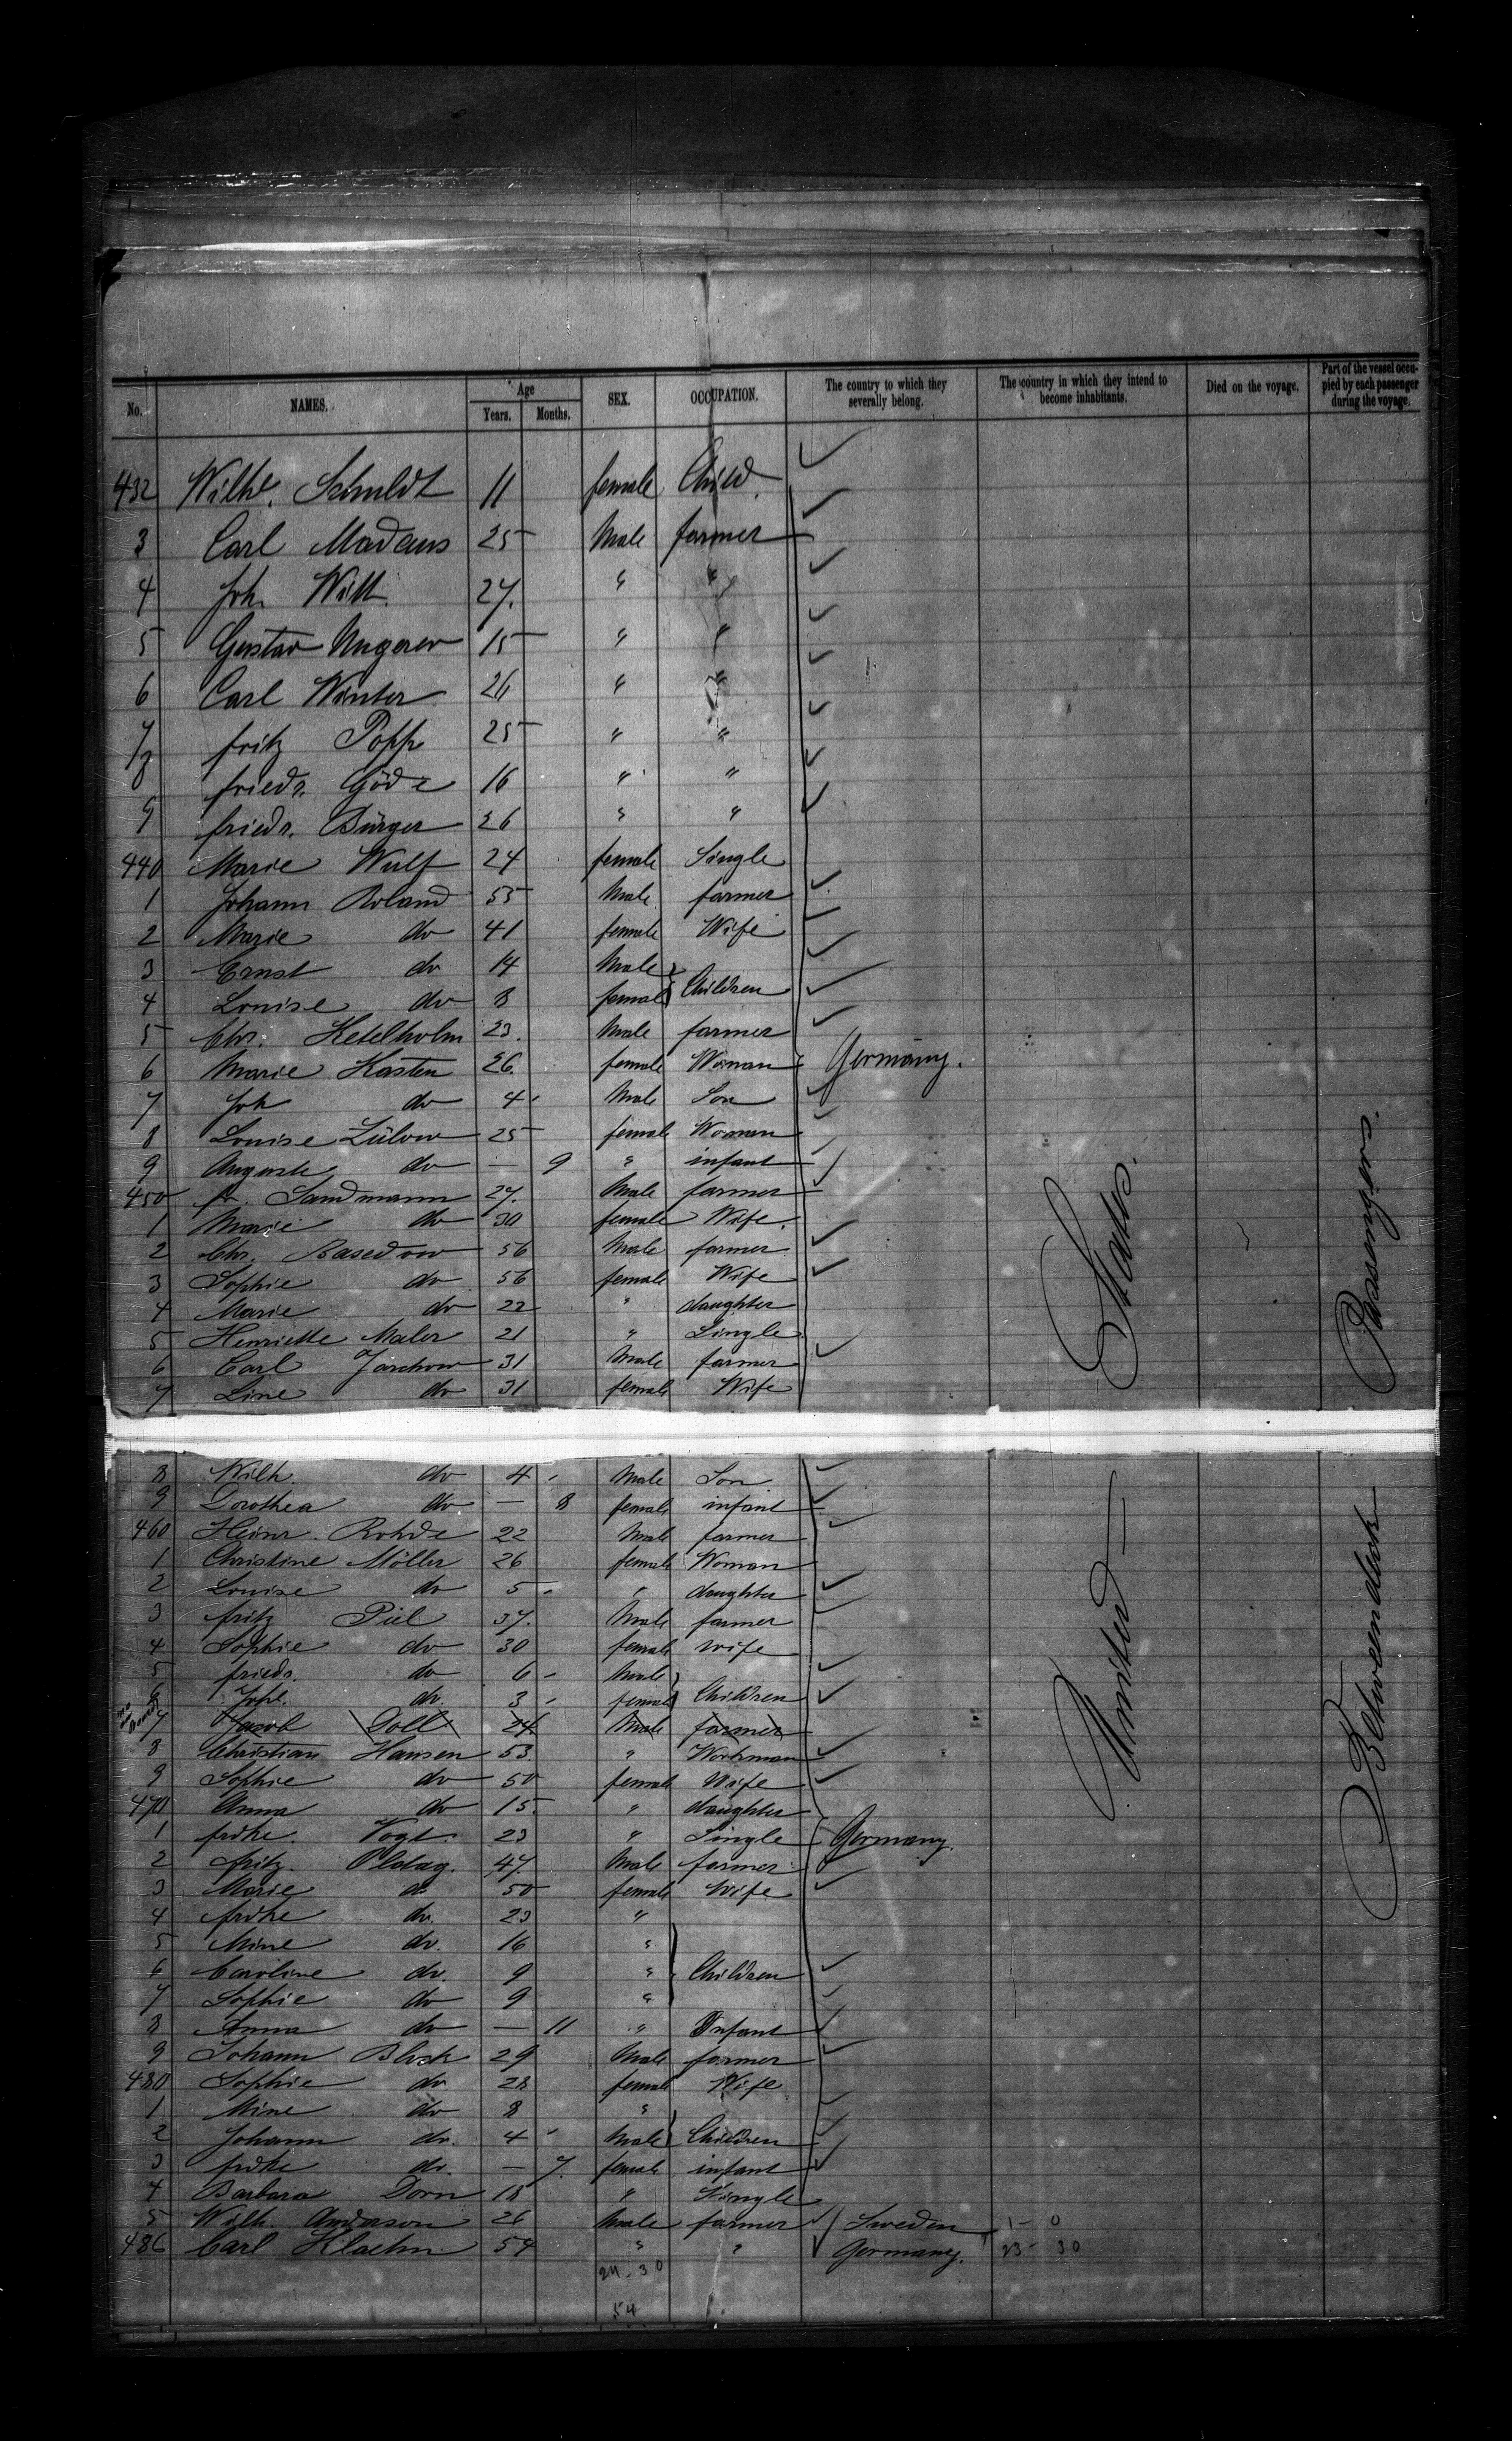 No. NAMES. Age Years. Months. SEX. OCCUPATION. The country to which they severally belong. The country in which they intend to become inhabitants. Died on the voyage. Part of the vessel occupied by each passenger during the voyage.
432 Wilhe. Schuldt 11 female Child
3 Carl Madaus 25 Male farmer
4 Joh. Witt 27. " "
5 Gustav Ungerer 15 " "
6 Carl Winter 26 " "
7 fritz Popp 25 " "
8 friedr. Göde 16 " "
9 friedr. Bürger 26 " "
440 Marie Wulf 24 female Single
1 Johann Roland 55 Male farmer
2 Marie do 41 female Wife
3 Ernst do 14 Male
4 Louise do 8 female Children
5 Chr. Ketelholm 23. Male farmer
6 Marie Kasten 26. female Woman Germany.
7 Joh do 4 Male Son
8 Louise Lülow 25 female Women
9 Auguste do — 9 " infant
450 fr. Sandmann 27. Male farmer
1 Marie do 30 female Wife.
2 Chr. Basedow 56 Male farmer
3 Sophie do 56 female Wife
4 Marie do 22 " daughter
5 Henriette Maler 21 " Single
6 Carl Jarchow 31 Male farmer
7 Line do 31 female Wife
8 Wilh. do 4 Male Son
9 Dorothea do — 8 female infant
460 Heinr. Rohde 22 Male farmer
1 Christine Möller 26 female Woman
2 Louise do 5 " daughter
3 fritz Piel 37. Male farmer
4 Sophie do 30 female wife
5 friedr. do 6 Male
6 do. 3 female Children
7 Jacob Doll 24 Male farmer
8 Christian Hansen 53. " Workman
9 Sophie do 50 female Wife
470 Anna do 15. " daughter
1 frdke. Vogt. 23 " Single Germany.
2 fritz. 47. Male farmer
3 Marie do 50 female Wife
4 frdke do. 23 "
5 Mine do. 16 "
6 Caroline do. 9 " Children
7 Sophie do 9 "
8 Anna do — 11 " Infant
9 Johann Block 29 Male farmer
480 Sophie do. 28 female Wife
1 Mine do 8 "
2 Johann do. 4 Male Children
3 frdke do. — 7. female infant
4 Barbara Dorn 18 " Single
5 Wilh. Anderson 26 Male farmer Sweden 1 - 0
486 Carl Klaehn 54 " " Germany. 23 - 30
24 - 30
54
United States.
Betweendeck Passengers.